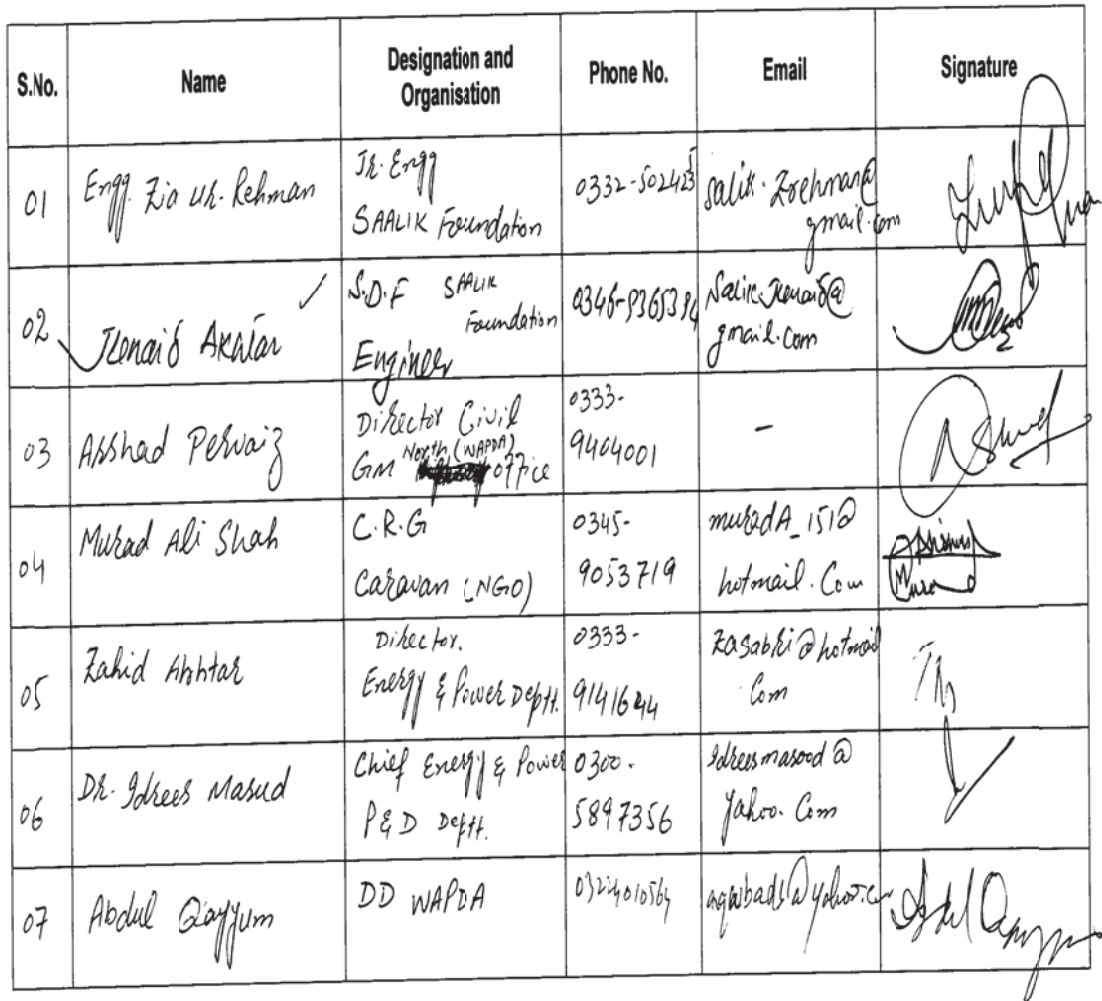 S.No. Name Designation and Organisation Phone No. Email Signature
01 Engg. Zia ur. Rehman
Jr. Engg
SAALIK Foundation
0332-5024235
salik.Zrehman@
gmail.com
02 Junaid Akhtar
S.D.F SAALIK
Foundation
Engineer
gmail.com
03 Arshad Pervaiz
Director Civil
North (WAPDA)
GM office
0333-
9464001
-
04 Murad Ali Shah
C.R.G
Caravan (NGO)
0345-
9053719
muradA_151@
hotmail.Com
05 Zahid Akhtar
Director.
Energy & Power Deptt.
0333-
9141644
zasabri@hotmail
Com
06 Dr. Idrees Masud
Chief Energy & Power
P&D Deptt.
0300-
5897356
Idreesmasood@
yahoo.Com
07 Abdul Qayyum
DD WAPDA
Abdul Qayyum